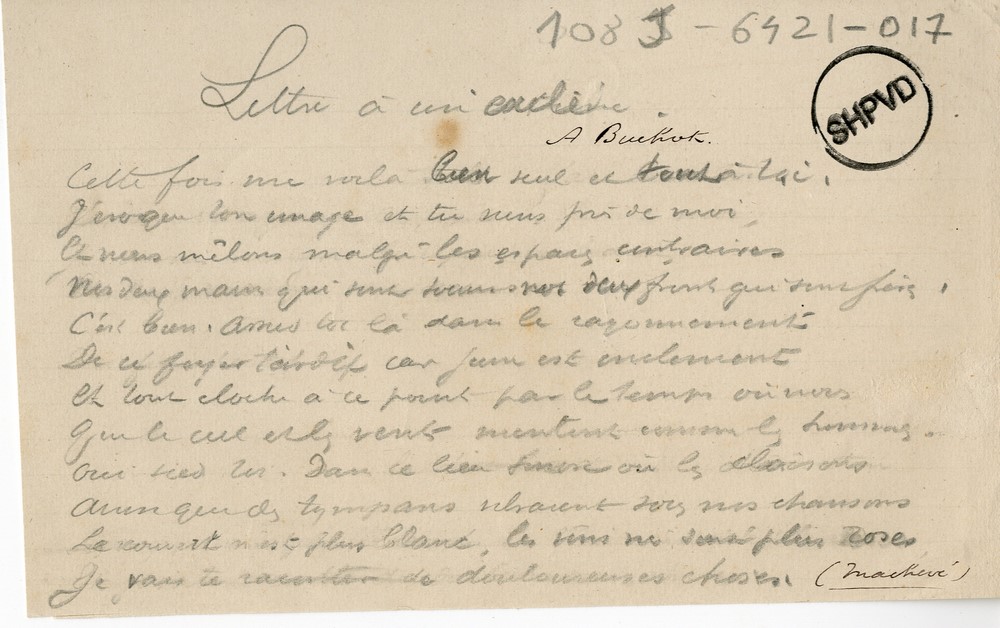 108 J - 6421-017
SHPVD
Lettre à un
A Buchot.
Cette fois me voilà bien seul et tout à toi.
J'évoque ton image et tu viens près de moi,
Et nous mêlons malgré les espaces contraires
Nos deux mains qui sont soeurs nos deux fronts qui sont frères.
C'est bien. Assieds toi là dans le rayonnement
De ce foyer tardif car juin est inclément
Et tout cloche à ce point par le temps où nous
Que le ciel et le vent mentent comme les hommes.
Oui sied toi. Dans ce lieu où les cloisons
Ainsi que des tympans vibraient sous nos chansons
Le n'est plus blanc, les vins ne sont plus roses
Je vais te raconter de douloureuses choses.
(inachevé)